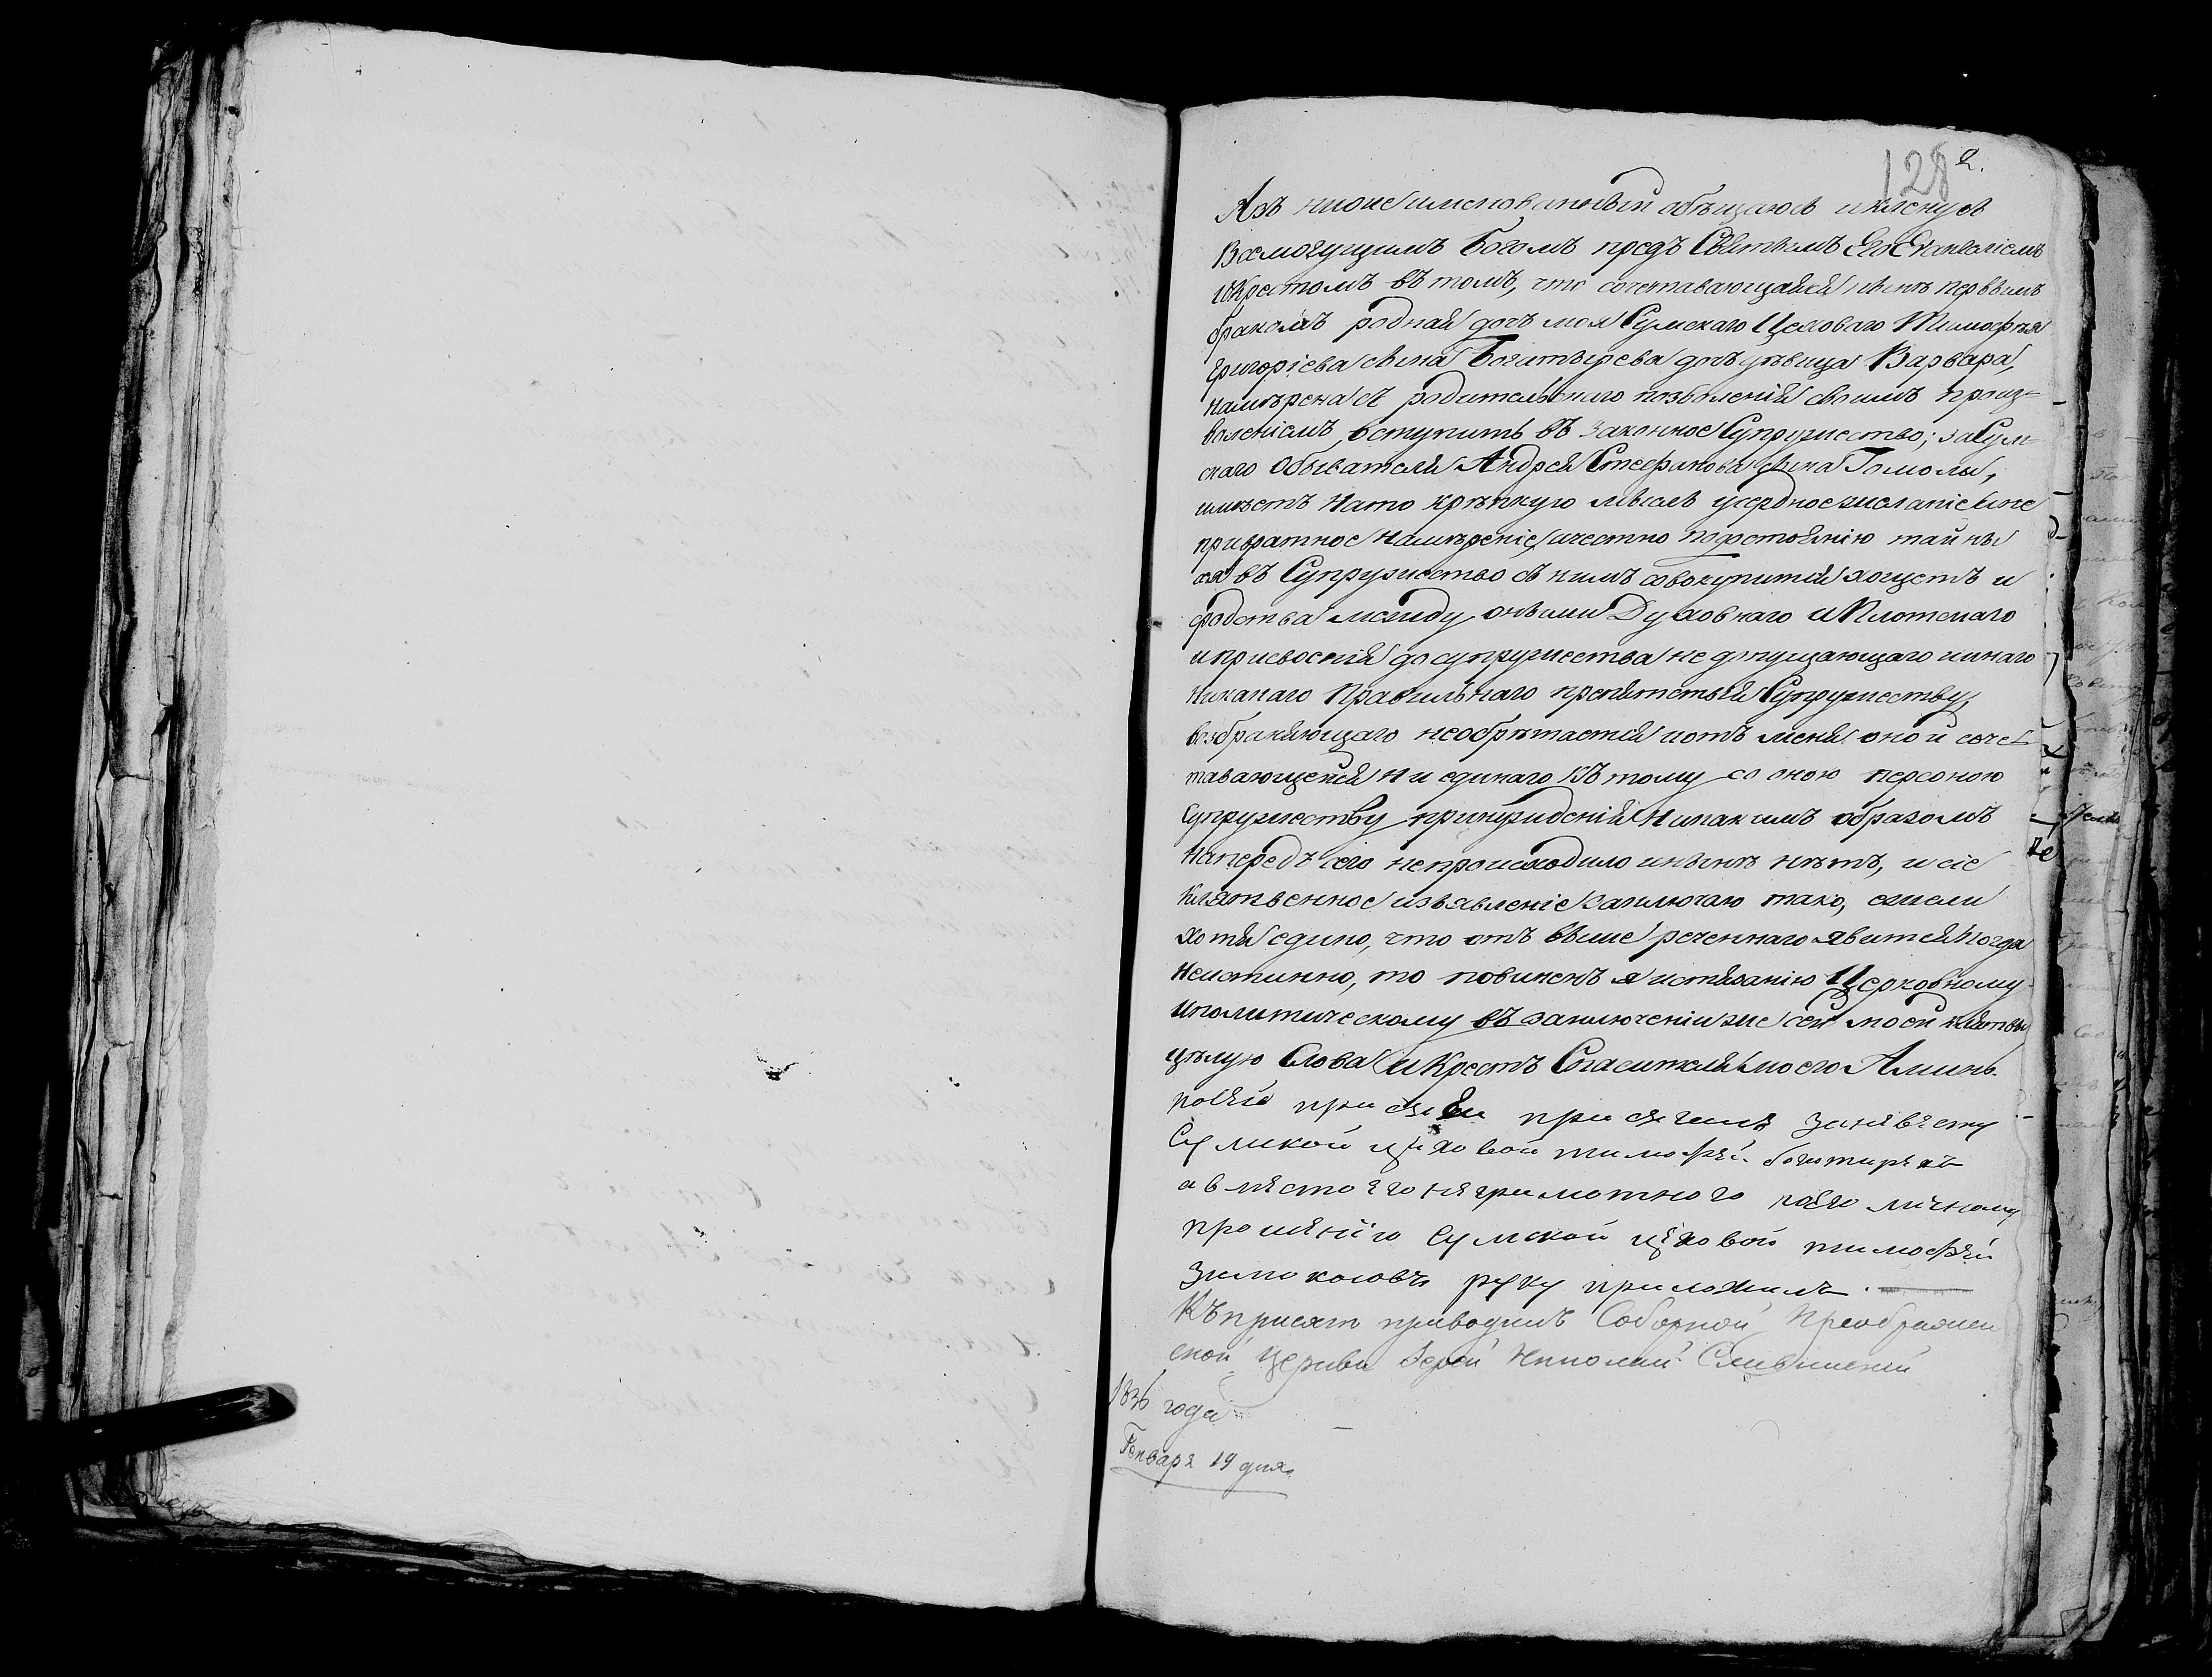 128 2.
Азъ нижеименованный обѣщаюсь и кленусь
Всемогущимъ Богомъ предъ Святымъ Его Евангелиемъ
и Крестомъ въ томъ, что сочетавающайся нынѣ первымъ
бракомъ родная дочь моя Сумскаго Цеховаго Тимофѣя
Григорієва сына Богатырева дочь дѣвица Варвара,
намѣрена съ родительскаго позволенія своимъ произ=
воленіемъ, вступить въ законное Супружество; за Сум=
скаго Обывателя Андрея Стефанова сына Гомолы,
имѣетъ на то крѣпкую мысль усердное желаніе и не
привратное намѣреніе, и честно по достоянію тайны
сея въ Супружество съ нимъ совокупитися хощетъ и
сродства между оными Духовнаго и Плотскаго
и присвоенія до супружества не допущающаго и инаго
никакаго Правильнаго препятствія Супружеству,
возбраняющаго необрѣтается и отъ меня оной соче-
тавающейся ни единаго къ тому со оною персоною
Супружеству принужденія никакимъ образомъ
напередъ сего непроисходило и нынѣ нѣтъ, и сіе
клятвенное изъявленіе заключаю тако, ежели
хотя едино, что отъ выше реченнаго явится когда
неистинно, то повиненъ я истязанію Церковному
и политическому въ заключеніи же сей моей клятвы
цѣлую Слова и Крестъ Спасителя моего Аминь.
по сей присяги присягалъ
Сумской цеховой тимофей богатиревъ
а вместо его неграмотного по его личному
прошенію Сумской цеховой тимофей
руку приложилъ.
Къ присягѣ приводилъ Соборной Преображен
ской церкви Іерей Николай
1836 года
Генваря 19 дня.